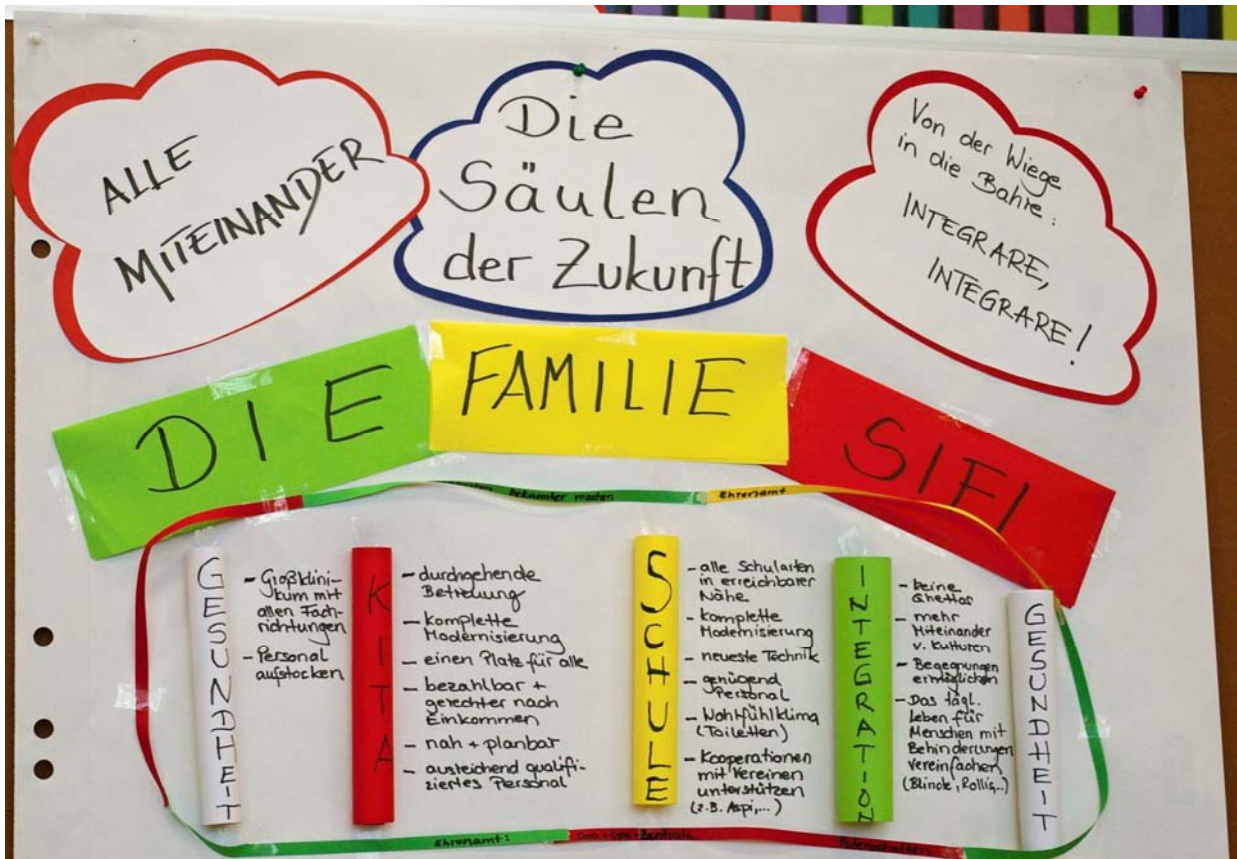 ALLE
MITEINANDER
Die
Säulen
der Zukunft
Von der Wiege
in die Bahre:
INTEGRARE,
INTEGRARE!
DIE FAMILIE SIFI
bekannter machen
Ehrenamt
GESUNDHEIT
- Großklini-
kum mit
allen Fach-
richtungen
- Personal
aufstocken
KITA
- durchgehende
Betreuung
- komplette
Modernisierung
- einen Platz für alle
- bezahlbar +
gerechter nach
Einkommen
- nah + planbar
- ausreichend qualifi-
ziertes Personal
SCHULE
- alle Schularten
in erreichbarer
Nähe
- komplette
Modernisierung
- neueste Technik
- genügend
Personal
- Wohlfühlklima
(Toiletten)
- Kooperationen
mit Vereinen
unterstützen
(z.B. Aspi,...)
INTEGRATION
- keine
Ghettos
- mehr
Miteinander
v. Kulturen
- Begegnungen
ermöglichen
- Das tägl.
Leben für
Menschen mit
Behinderungen
vereinfachen
(Blinde, Rollis,...)
GESUNDHEIT
Ehrenamt:
Oma + Opa - Zentrale